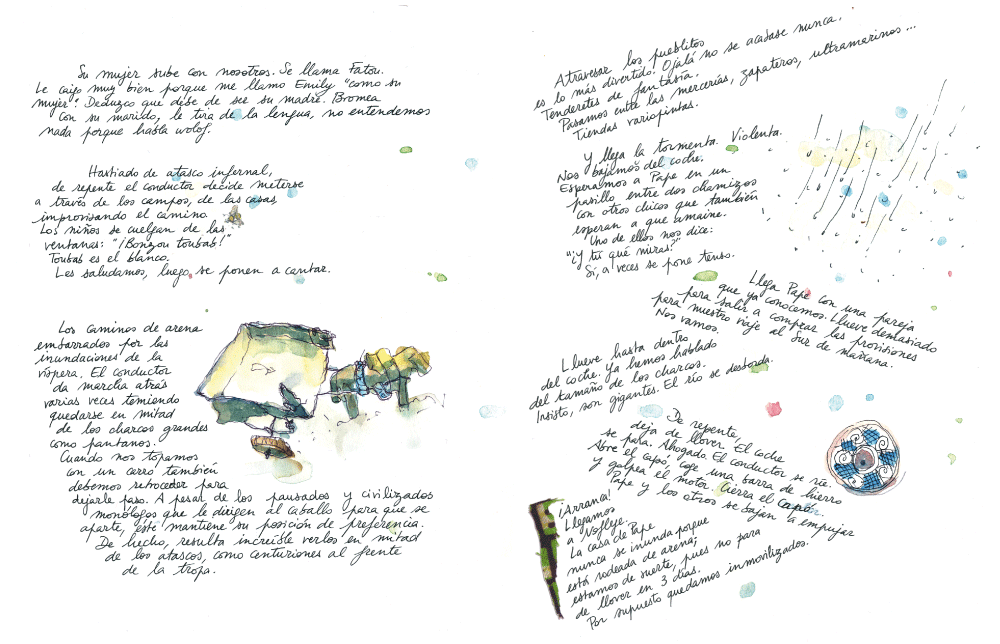 Su mujer sube con nosotros. Se llama Fatou.
Le caigo muy bien porque me llamo Emily "como su
mujer". Deduzco que debe de ser su madre. Bromea
con su marido, le tira de la lengua, no entendemos
nada porque habla wolof.
Hastiado de atasco infernal,
de repente el conductor decide meterse
a través de los campos, de las casas,
improvisando el camino.
Los niños se cuelgan de las
ventanas: "¡Bonzou toubab!"
Toubab es el blanco.
Les saludamos, luego, se ponen a cantar.
Los caminos de arena
embarrados por las
inundaciones de la
víspera. El conductor
da marcha atrás
varias veces temiendo
quedarse en mitad
de los charcos grandes
como pantanos.
Cuando nos topamos
con un carro también
debemos retroceder para
dejarle paso. A pesar de los pausados y civilizados
monólogos que le dirigen al caballo para que se
aparte, éste mantiene su posición de preferencia.
De hecho, resulta increíble verlos en mitad
de los atascos, como centuriones al frente
de la tropa.
Atravesar los pueblitos
es lo más divertido! Ojalá no se acabase nunca.
Tenderetes de fantasía.
Pasamos entre las mercerías, zapateros, ultramarinos...
Tiendas variopintas.
Y llega la tormenta. Violenta.
Nos bajamos del coche.
Esperamos a Pape en un
pasillo entre dos chamizos
con otros chicos que también
esperan a que amaine.
Uno de ellos nos dice:
"¿Y tú qué miras?"
Sí, a veces se pone tenso.
Llega Pape con una pareja
que ya conocemos. Llueve demasiado
para salir a comprar las provisiones
para nuestro viaje al sur de mañana.
Nos vamos.
Llueve hasta dentro
del coche. Ya hemos hablado
del tamaño de los charcos.
Insisto, son gigantes. El río se desborda.
De repente,
deja de llover. El coche
se para. Ahogado. El conductor se ríe.
Abre el capó, coge una barra de hierro
y golpea el motor. Cierra el capó.
Pape y los otros se bajan a empujar
¡Arranca!
Llegamos
a Nofleye.
La casa de Pape
nunca se inunda porque
está rodeada de arena;
estamos de suerte, pues no para
de llover en 3 días.
Por supuesto quedamos inmovilizados.